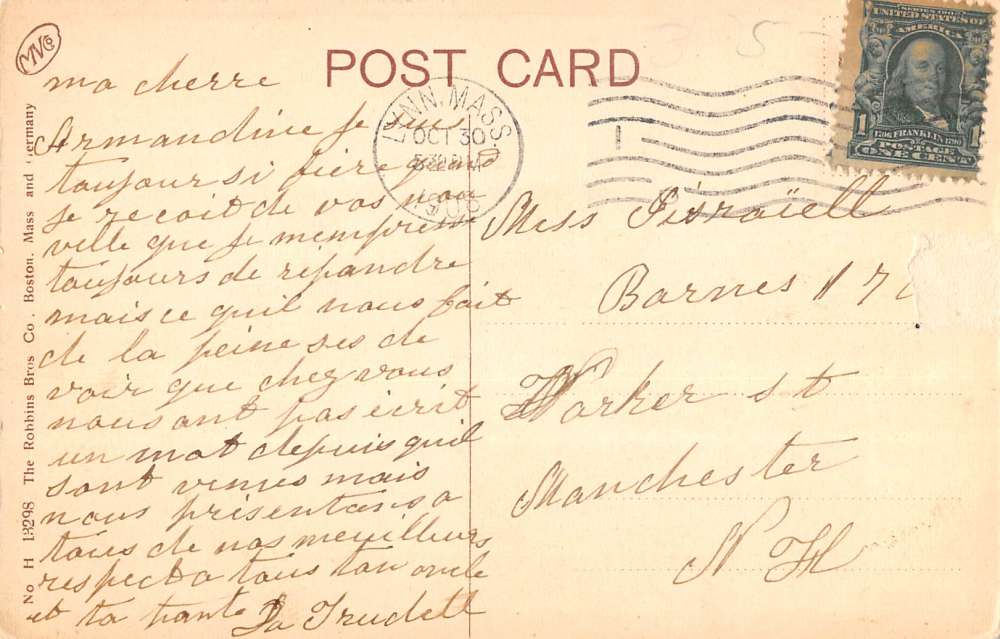 MVCo
POST CARD
No H 13298 The Robbins Bros Co. Boston. Mass and Germany
LYNN, MASS.
OCT 30
SERIES 1902
UNITED STATES OF
AMERICA
1706 FRANKLIN 1790
POSTAGE
1 ONE CENT 1
ma cherre
Armandine je suis
toujour si fiere quand
je recoit de vos nou
ville que je mempress
toujours de répandre
mais ce quil nous fait
de la peine ses de
voir que chez vous
nous ont pas écrit
un mot depuis quil
sont venues mais
nous présentons a
tous de nos meuilleurs
respect a tous ton oncle
et ta tante
Trudell
Miss
Barnes 17
Parker st
Manchester
N H